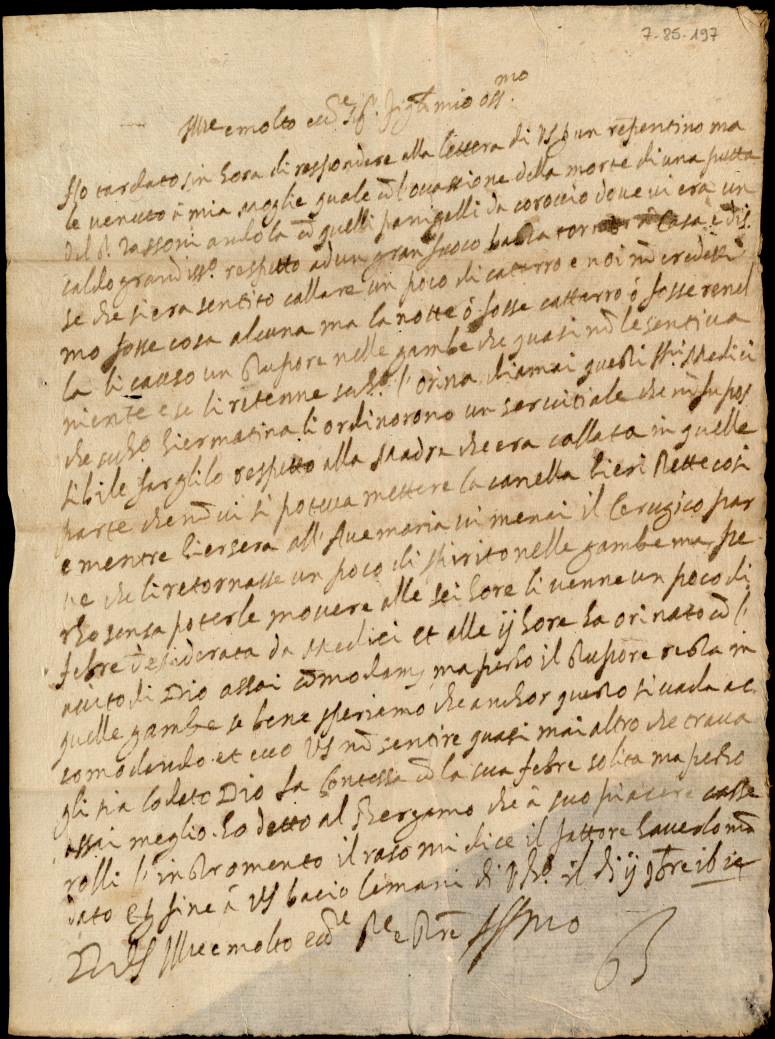 7-85-197
Ill.re e molto ecc.te Sig. figl. mio oss.mo
Ho tardato sin hora di respondere alla lettera di VS p un repentino ma
le venuto à mia moglie quale cō l'ovassione della morte di una putta
del S. Tassoni andò la cō quelli panigelli da coroccio dove vi era un
caldo grandiss.o respetto ad un gran fuoco tornar à Casa e dis
se che si era sentito callare un poco di catarro e noi nō credessi
mo fosse cosa alcuna ma la notte ò fosse cattarro ò fosse renel
la li causo un stupore nelle gambe che quasi nō le sentiva
niente e se li ritenne l'orina chiamai questi SSri Medici
che hiermatina li ordinorono un servitiale che nō fu pos
sibile farglilo respetto alla Madre che era callata in quelle
parte che nō vi si poteva mettere la canella hieri stette cosi
e mentre hiersera all'Avemaria vi menai il Cerugico par
ve che li retornasse un poco di spirito nelle gambe ma pe
rho senza poterle movere alle sei hore li venne un poco di
febre desiderata da Medici et alle ij hore ha orinato cō l'
aiuto di Dio assai cōmodam, ma perho il stupore resta in
quelle gambe se bene speriamo che anchor questo si vada ac
comodando et ecco VS nō sentire quasi mai altro che trava
gli sia lodato Dio la Contessa cō la sua febre solita ma perho
assai meglio. ho detto al Bergamo che à suo piacere
rolli l'instromento il raso mi dice il fattore haverlo mā
dato et p fine à VS bacio le mani di il di ij 9bre
D VS Ill.re e molto ecc.te